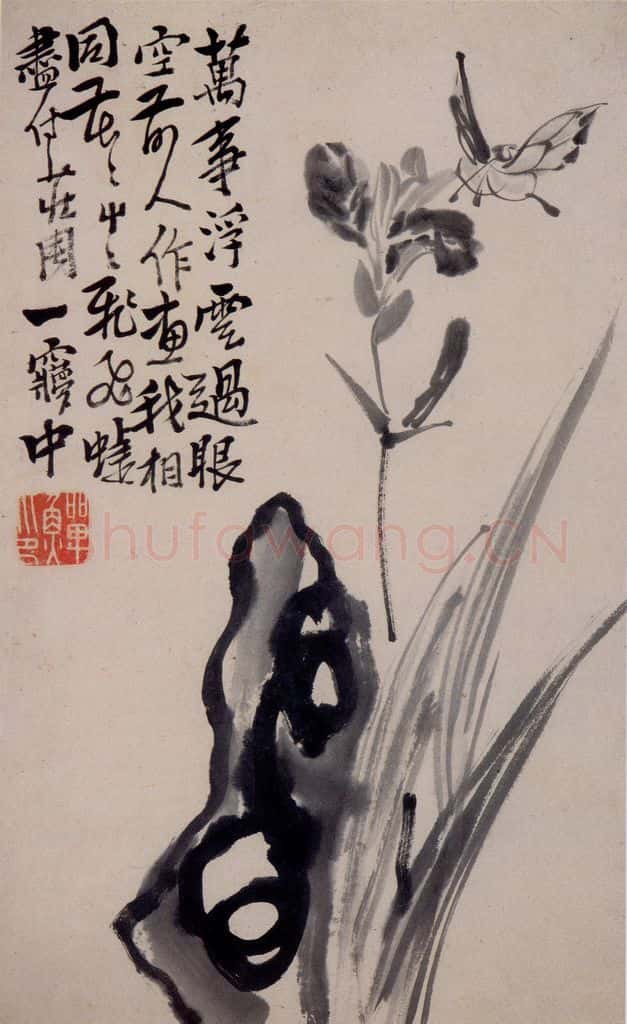 萬事浮雲過眼
空前人作畫我相
同花〻艸〻飛飛蝶
盡付莊周一夢中
shufawang.CN